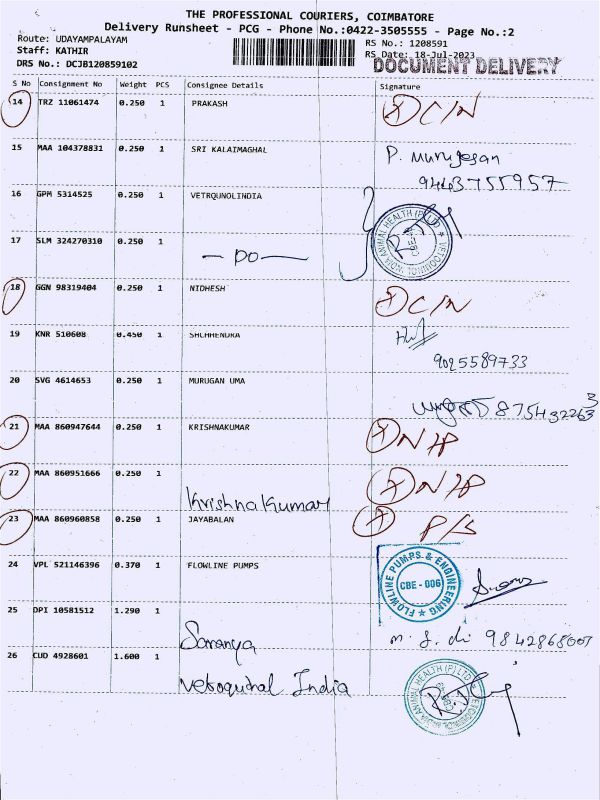 THE PROFESSIONAL COURIERS, COIMBATORE
Delivery Runsheet - PCG - Phone No.:0422-3505555 - Page No.:2
Route: UDAYAMPALAYAM RS No.: 1208591
Staff: KATHIR RS Date: 18-Jul-2023
DRS No.: DCJB120859102 DOCUMENT DELIVERY
S No Consignment No Weight PCS Consignee Details Signature
14 TRZ 11061474 0.250 1 PRAKASH C/N
15 MAA 104378831 0.250 1 SRI KALAIMAGHAL P. Murugesan
9443755957
16 GPM 5314525 0.250 1 VETRQUNOLINDIA
17 SLM 324270310 0.250 1
— DO —
18 GGN 98319404 0.250 1 NIDHESH C/N
19 KNR 510608 0.450 1 SHCHHENDRA
9025589733
20 SVG 4614653 0.250 1 MURUGAN UMA
21 MAA 860947644 0.250 1 KRISHNAKUMAR N/P
22 MAA 860951666 0.250 1 N/P
Krishnakumar
23 MAA 860960858 0.250 1 JAYABALAN P/S
24 VPL 521146396 0.370 1 FLOWLINE PUMPS FLOWLINE PUMPS & ENGINEERING CBE - 006
25 DPI 10581512 1.290 1
Saranya 9842868007
26 CUD 4928601 1.600 1
Vetoquinal India